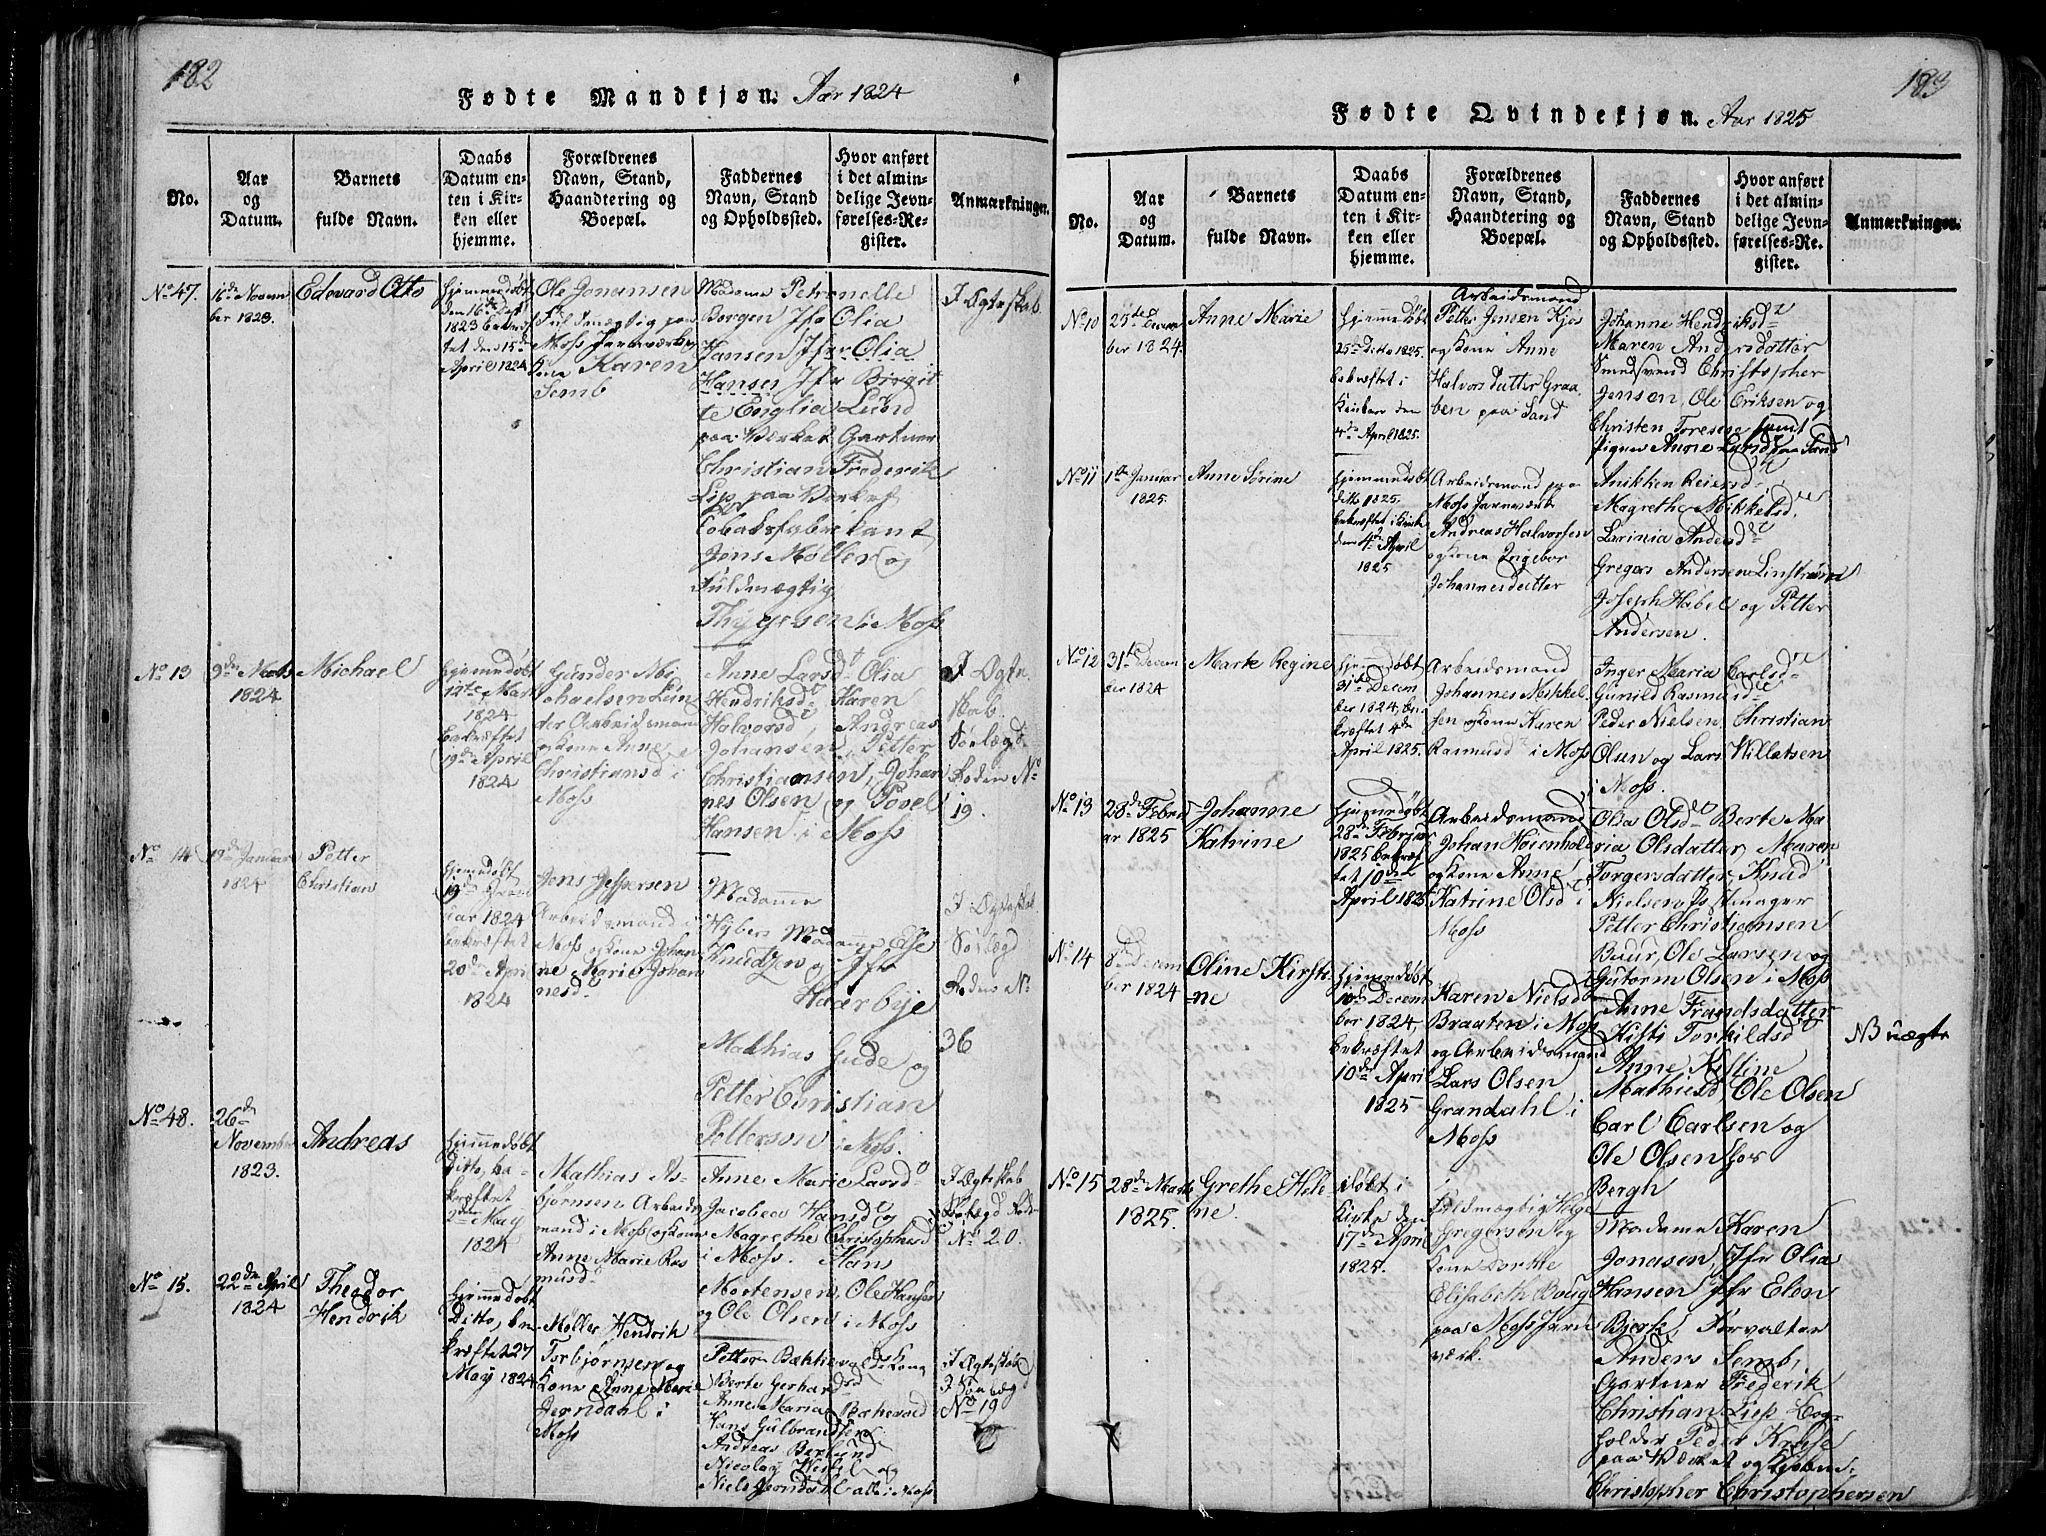 182
Fødte Mandkjøn. Aar 1824
No.
Aar
og
Datum.
Barnets
fulde Navn.
Daabs
Datum en-
ten i Kir-
ken eller
hjemme.
Forældrenes
Navn, Stand,
Haandtering og
Boepæl.
Faddernes
Navn, Stand
og Opholdssted.
Hvor anført
i det almin-
delige Jevn-
førelses-Re-
gister.
Anmærkninger.
No 47.
16de Novem
ber 1823.
Edevard Otto
Hjemmedøbt
den 16de
1823 bekræf
tet den 15de
April 1824
Ole Jonansen
Fuldmægtig paa
Moss Jernværk
Kone Karen
Semb
Madame Petronelle
Borgen Jfr Olia
Hansen Jfr Olia
Hansen Jfr Birgit
te Englia Lund
paa Værket Gartner
Christian Frederik
Liep paa Værket
Tobaksfabrikant
Jens Møller og
Fuldmægtig
Thygesen i Moss
I Ægteskab.
No 13
9de Marts
1824
Michael
Hjemmedøbt
12te Marts
1824
bekræftet
19de April
1824
Gunder Mi
chaelsen
Arbeidsmand
og Kone Anne
Christiansd i
Moss
Anne Larsd Olia
Hendriksd Karen
Halvorsd, Andreas
Johansen, Petter
Christiansen, Johan
nes Olsen og Povel
Hansen i Moss
I Ægte
skab.
Søelægd
Roden No
19.
No 14
19de Januar
1824
Petter
Christian
Hjemdøbt
19de Janu
ar 1824
bekræftet
20de April
1824
Jens Jespersen
Arbeidsmand i
Moss og Kone Johan
ne Marie Johan
nesd
Madamme
Nybers Madamme Else
Knudtzen og Jfr
Haarbye
Mathias Gude og
Petter Christian
Petterson i Moss.
I Ægteskab
Søelægd
Roden No
36
No 48.
26de
November
1823.
Andreas
Hjemmedøbt
Ditto, be-
kræftet
May
1824
Mathias As-
bjørnsen Arbeids
mand i Moss og Kone
Anne Marie Ras
musd
Anne Marie Larsd
Jacobea Hansd og
Magrethe Christophersd
i Moss. Hans
Mortensen, Ole Hansen
og Ole Olsen i Moss
I Ægteskab
Søelægd Rode
No 20.
No 15.
22de April
1824
Theodor
Hendrik
Hjemmedøbt
Ditto, be
kræftet 27
May 1824
Møller Hendrik
Torbjørnsen og
Kone Anne Marie
Jerndahl i
Moss
Petter Bakke og Kone
Berte Gerhardsd
Anne Maria Bakevold
Hans Gulbrandsen
Andreas Berlund
Nicolay Wessel og
Niels Jerndahl alle i Moss
I Ægteskab
I Søelægd
No 19
183
Fødte Qvindekjøn. Aar 1825
No.
Aar
og
Datum.
Barnets
fulde Navn.
Daabs
Datum en-
ten i Kir-
ken eller
hjemme.
Forældrenes
Navn, Stand,
Haandtering og
Boepæl.
Faddernes
Navn, Stand
og Opholdssted.
Hvor anført
i det almin-
delige Jevn-
førelses-Re-
gister.
Anmærkninger.
No 10
25de Decem
ber 1824.
Anne Marie
Hjemmedøbt
25de Ditto 1825.
bekræftet i
Kirken den
4de April 1825.
Arbeidsmand
Petter Jensen Kjøs
og Kone Anne
Halvorsdatter Graa
ben paa Sand
Johanne Hendriksd
Maren Andersdatter
Smedsvend Christopher
Jensen, Ole Eriksen og
Christen Toresene samt
Pigen Anne Lund paa Sand
No 11
1te Januar
1825
Anne Sørine
Hjemmedøbt
dito 1825.
bekræftet i Kirke
den 4de April
1825
Arbeidsmand paa
Moss Jernværk
Andreas Halvorsen
og Kone Ingebor
Johannesdatter
Anikken Reiersd.
Magrethe Mikkelsd.
Larinia Andersd
Gregers Andersen Linstrøm
Joseph Habel og Petter
Andersen.
No 12
31te Decem
ber 1824
Marte Regine
Hjemmedøbt
31te Decem
ber 1824, be
kræftet 4de
April 1825.
Arbeidsmand
Johannes Mikkel
sen og Kone Karen
Rasmusd i Moss
Inger Maria Carlsd
Gunild Rasmusd
Peder Nielsen, Christian
Olsen og Lars Willatsen
i Moss.
No 13
28de Febru
ar 1825
Johanne
Katrine
Hjemmedøbt
28de Februar
1825 bekræf
tet 10de
April 1825
Arbeidsmand
Johan Høienhold
og Kone Anne
Katrine Olsd i
Moss
Olia Olsd Berte Ma
ria Olsdatter, Maren
Torgersdatter, Knud
Nielsen, Postmager
Petter Christiansen
Buur, Ole Larsen og
Gutorm Olsen i Moss
No 14
8de Decem
ber 1824
Oline Kirsti
ne
Hjemmedøbt
10de Decem
ber 1824
bekræftet
10de April
1825
Karen Nielsd
Braaten i Moss
og Arbeidsmand
Lars Olsen
Grandahl i
Moss
Anne Frandsdatter
Kisti Torkildsd
Anne Kistine
Mathiesd Ole Olsen
Carl Carlsen og
Ole Olsen for
Bergh
NB uægte
No 15
28de Marts
1825.
Grethe Hele
ne.
døbt i
Kirke den
17de April
1825.
Fuldmægtig Helge
Gregersen og
Kone Dorthe
Elisabeth Boug
paa Moss Jern
værk.
Madame Karen
Jonasen, Jfr Olia
Hansen Jfr Elen
Bjerke, Forvalter
Anders Semb,
Gartner Frederik
Christian Liep Bog-
holder Peder Krebse
paa Værket og Kjøbm:
Christopher Christophersen